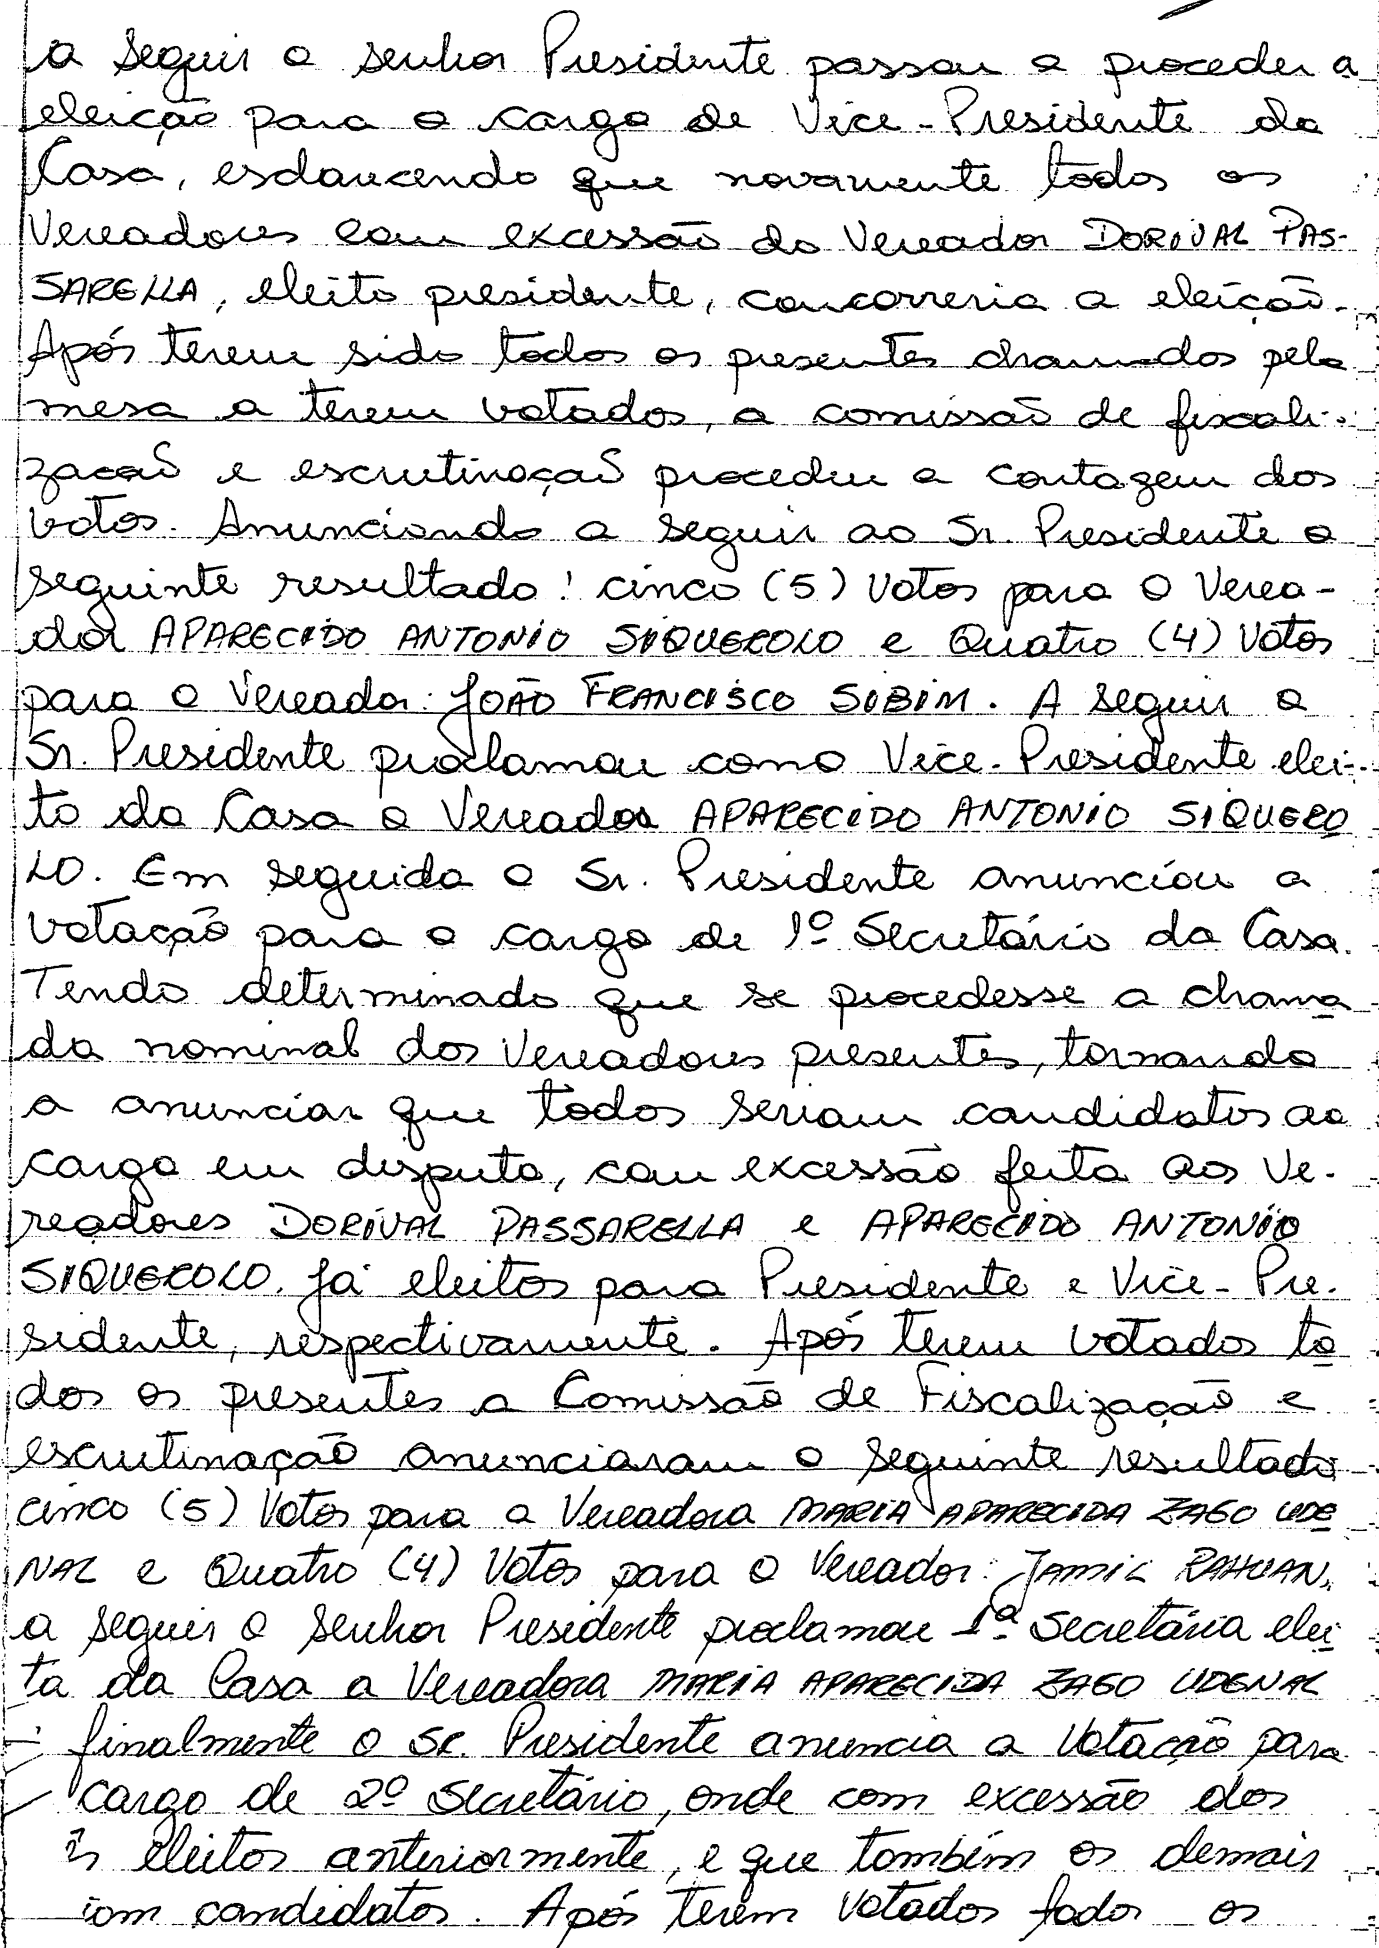 a seguir o senhor Presidente passou a proceder a
eleição para o cargo de Vice-Presidente da
Casa, esclarecendo que novamente todos os
Vereadores com excessão do Vereador DORIVAL PAS-
SARELLA, eleito presidente, concorreria a eleição.
Após terem sido todos os presentes chamados pela
mesa a terem votados, a comissão de fiscali-
zação e escrutinação procedeu a contagem dos
votos. Anunciando a seguir ao Sr. Presidente o
seguinte resultado: cinco (5) Votos para o Verea-
dor APARECIDO ANTONIO SIQUEROLO e Quatro (4) Votos
para o Vereador: JOÃO FRANCISCO SIBIM. A seguir o
Sr. Presidente proclamou como Vice-Presidente elei-
to da Casa o Vereador APARECIDO ANTONIO SIQUERO
LO. Em seguida o Sr. Presidente anunciou a
votação para o cargo de 1º Secretário da Casa.
Tendo determinado que se procedesse a chama
da nominal dos Vereadores presentes, tornando
a anunciar que todos seriam candidatos ao
cargo em disputa, com excessão feita aos Ve-
readores DORIVAL PASSARELLA e APARECIDO ANTONIO
SIQUEROLO. Já eleitos para Presidente e Vice-Pre-
sidente, respectivamente. Após terem votados to
dos os presentes a Comissão de Fiscalização e
escrutinação anunciaram o seguinte resultado
cinco (5) Votos para a Vereadora MARIA APARECIDA ZAGO UDE
NAL e Quatro (4) Votos para o Vereador: JAMIL RAHUAN,
a seguir o senhor Presidente proclamou 1ª Secretária elei
ta da Casa a Vereadora MARIA APARECIDA ZAGO UDENAL
finalmente o Sr. Presidente anuncia a Votação para
cargo de 2º Secretário, onde com excessão dos
eleitos anteriormente, e que também os demais
candidatos. Após terem votados todos os